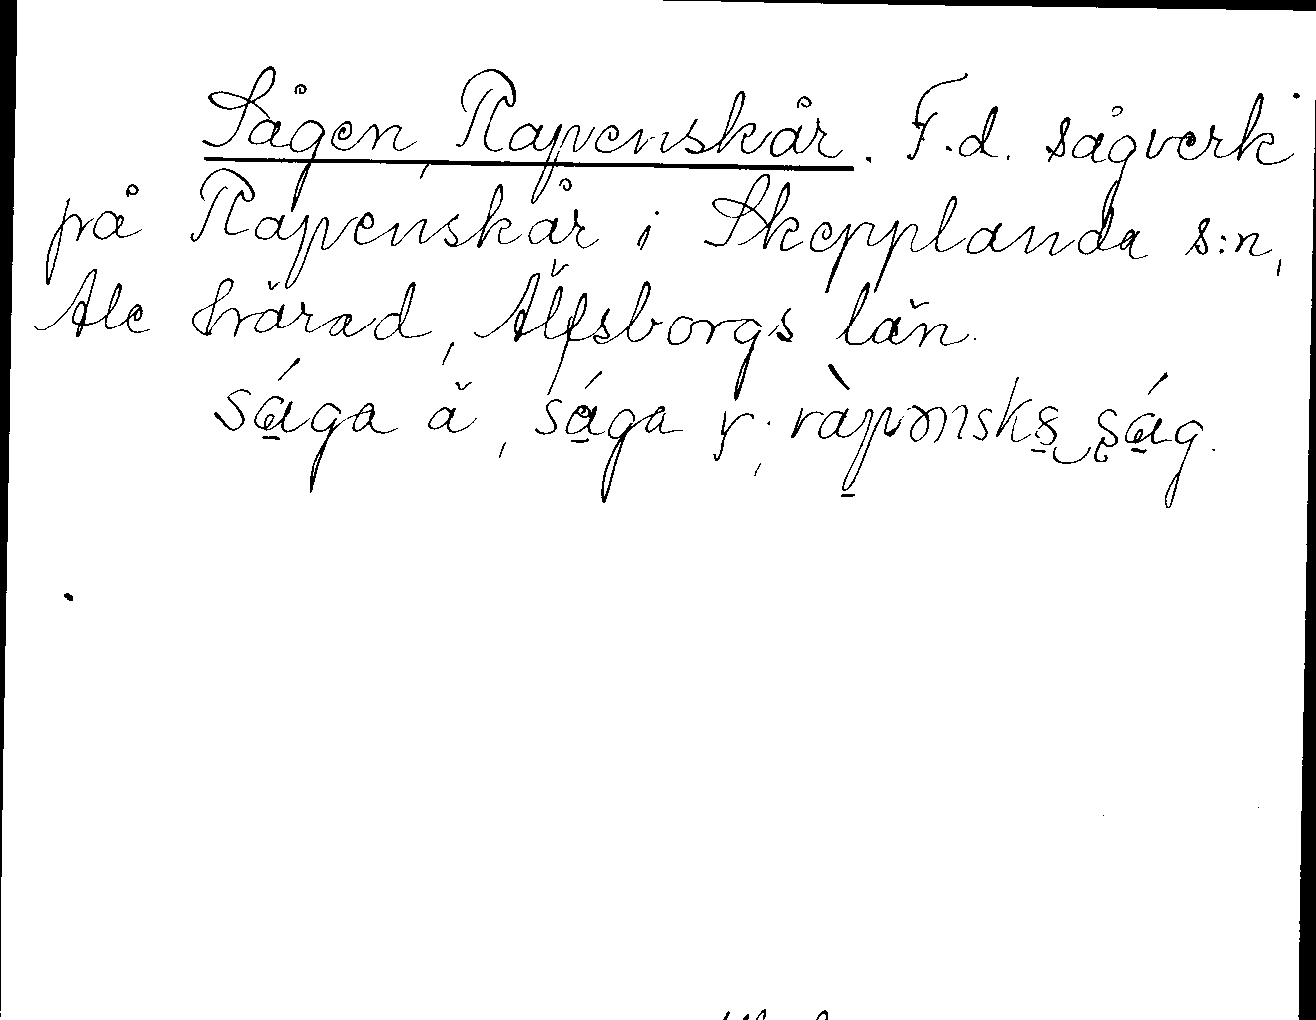 Sågen, Rapenskår. F.d. sågverk
på Rapenskår i Skepplanda s:n,
Ale härad, Älfsborgs län.
sága ä, sága